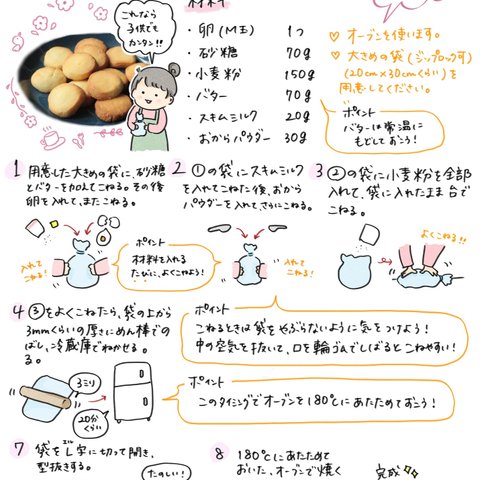 材料
これなら
子供でも
カンタン!!
・卵(M玉) 1つ
・砂糖 70g
・小麦粉 150g
・バター 70g
・スキムミルク 20g
・おからパウダー 30g
♡オーブンを使います。
♡大きめの袋(ジップロック可)
(20cm×30cmくらい)を
用意してください。
ポイント
バターは常温に
もどしておこう!
1 用意した大きめの袋に、砂糖
とバターを加えてこねる。その後
卵を入れて、またこねる。
2 ①の袋にスキムミルク
を入れてこねた後、おから
パウダーを入れて、さらにこねる。
3 ②の袋に小麦粉を全部
入れて、袋に入れたまま台で
こねる。
入れて
こねる!
ポイント
材料を入れる
たびに、よくこねよう!
入れて
こねる!
よくこねる!!
4 ③をよくこねたら、袋の上から
3mmくらいの厚さにめん棒での
ばし、冷蔵庫でねかせる。
る。
ポイント
こねるときは袋をやぶらないように気をつけよう!
中の空気を抜いて、口を輪ゴムでしばるとこねやすい!
3ミリ
20分
くらい
ポイント
このタイミングでオーブンを180℃にあたためておこう!
7 袋をL字に切って開き、
エル
型抜きする。
たのしい!
8 180℃にあたためて
おいた、オーブンで焼く
完成